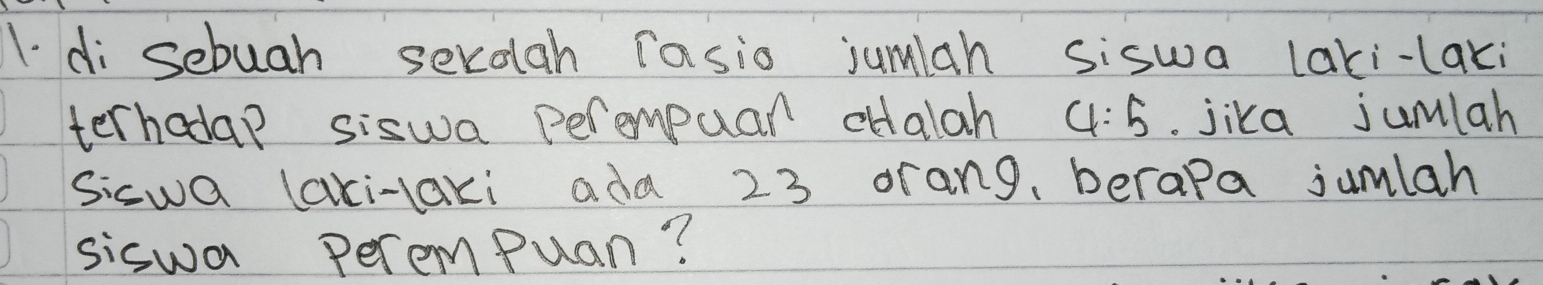 1. di sebuah sekolah rasio jumlah siswa laki-laki
terhadap siswa perempuan adalah 4:5. jika jumlah
siswa laki-laki ada 23 orang, berapa jumlah
siswa perempuan?